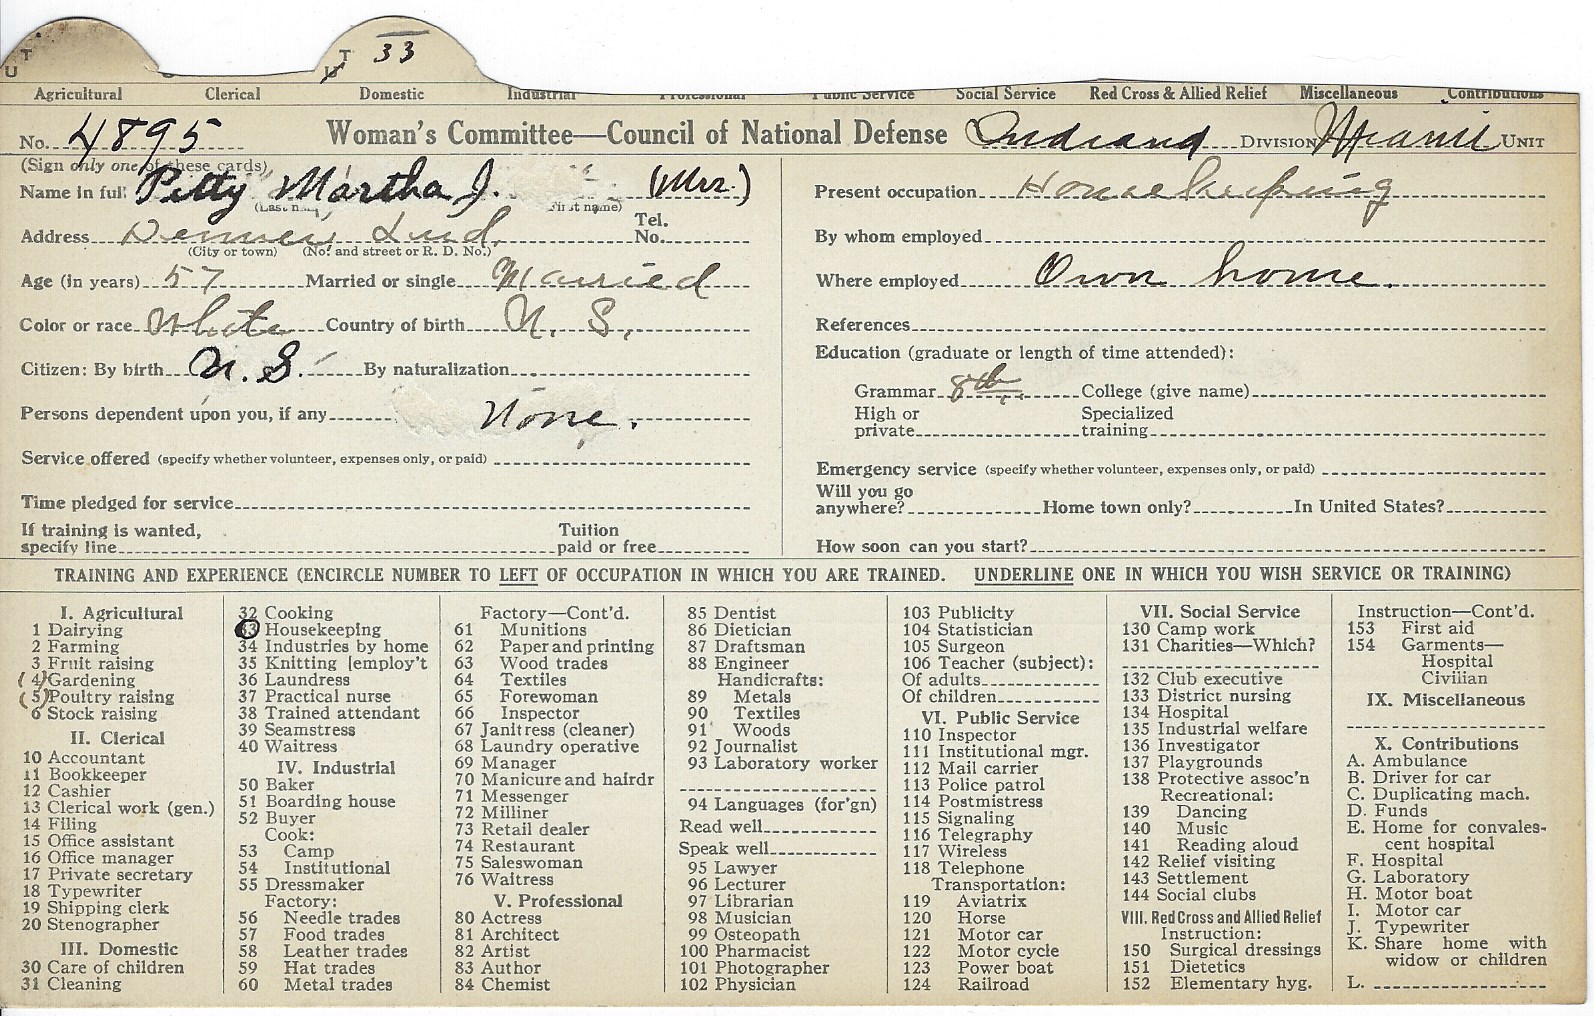 U T
U T 33
Agricultural Clerical Domestic Industrial Professional Public Service Social Service Red Cross & Allied Relief Miscellaneous Contributions
No. 4895 Woman's Committee—Council of National Defense Indiana DIVISION Miami UNIT
(Sign only one of these cards)
Name in full Petty Martha J. (Mrs.)
(Last name) (First name)
Address Denver, Ind. Tel. No.
(City or town) (No. and street or R. D. No.)
Age (in years) 57 Married or single Married
Color or race White Country of birth U. S.
Citizen: By birth U. S. By naturalization
Persons dependent upon you, if any None.
Service offered (specify whether volunteer, expenses only, or paid)
Time pledged for service
If training is wanted, specify line Tuition paid or free
Present occupation Housekeeping
By whom employed
Where employed Own home.
References
Education (graduate or length of time attended):
Grammar 8th College (give name)
High or private Specialized training
Emergency service (specify whether volunteer, expenses only, or paid)
Will you go anywhere? Home town only? In United States?
How soon can you start?
TRAINING AND EXPERIENCE (ENCIRCLE NUMBER TO LEFT OF OCCUPATION IN WHICH YOU ARE TRAINED. UNDERLINE ONE IN WHICH YOU WISH SERVICE OR TRAINING)
I. Agricultural
1 Dairying
2 Farming
3 Fruit raising
(4) Gardening
(5) Poultry raising
6 Stock raising
II. Clerical
10 Accountant
11 Bookkeeper
12 Cashier
13 Clerical work (gen.)
14 Filing
15 Office assistant
16 Office manager
17 Private secretary
18 Typewriter
19 Shipping clerk
20 Stenographer
III. Domestic
30 Care of children
31 Cleaning
32 Cooking
33 Housekeeping
34 Industries by home
35 Knitting [employ't
36 Laundress
37 Practical nurse
38 Trained attendant
39 Seamstress
40 Waitress
IV. Industrial
50 Baker
51 Boarding house
52 Buyer
Cook:
53 Camp
54 Institutional
55 Dressmaker
Factory:
56 Needle trades
57 Food trades
58 Leather trades
59 Hat trades
60 Metal trades
Factory—Cont'd.
61 Munitions
62 Paper and printing
63 Wood trades
64 Textiles
65 Forewoman
66 Inspector
67 Janitress (cleaner)
68 Laundry operative
69 Manager
70 Manicure and hairdr
71 Messenger
72 Milliner
73 Retail dealer
74 Restaurant
75 Saleswoman
76 Waitress
V. Professional
80 Actress
81 Architect
82 Artist
83 Author
84 Chemist
85 Dentist
86 Dietician
87 Draftsman
88 Engineer
Handicrafts:
89 Metals
90 Textiles
91 Woods
92 Journalist
93 Laboratory worker
94 Languages (for'gn)
Read well
Speak well
95 Lawyer
96 Lecturer
97 Librarian
98 Musician
99 Osteopath
100 Pharmacist
101 Photographer
102 Physician
103 Publicity
104 Statistician
105 Surgeon
106 Teacher (subject):
Of adults
Of children
VI. Public Service
110 Inspector
111 Institutional mgr.
112 Mail carrier
113 Police patrol
114 Postmistress
115 Signaling
116 Telegraphy
117 Wireless
118 Telephone
Transportation:
119 Aviatrix
120 Horse
121 Motor car
122 Motor cycle
123 Power boat
124 Railroad
VII. Social Service
130 Camp work
131 Charities—Which?
132 Club executive
133 District nursing
134 Hospital
135 Industrial welfare
136 Investigator
137 Playgrounds
138 Protective assoc'n
Recreational:
139 Dancing
140 Music
141 Reading aloud
142 Relief visiting
143 Settlement
144 Social clubs
VIII. Red Cross and Allied Relief
Instruction:
150 Surgical dressings
151 Dietetics
152 Elementary hyg.
Instruction—Cont'd.
153 First aid
154 Garments—
Hospital
Civilian
IX. Miscellaneous
X. Contributions
A. Ambulance
B. Driver for car
C. Duplicating mach.
D. Funds
E. Home for convales-
cent hospital
F. Hospital
G. Laboratory
H. Motor boat
I. Motor car
J. Typewriter
K. Share home with
widow or children
L.